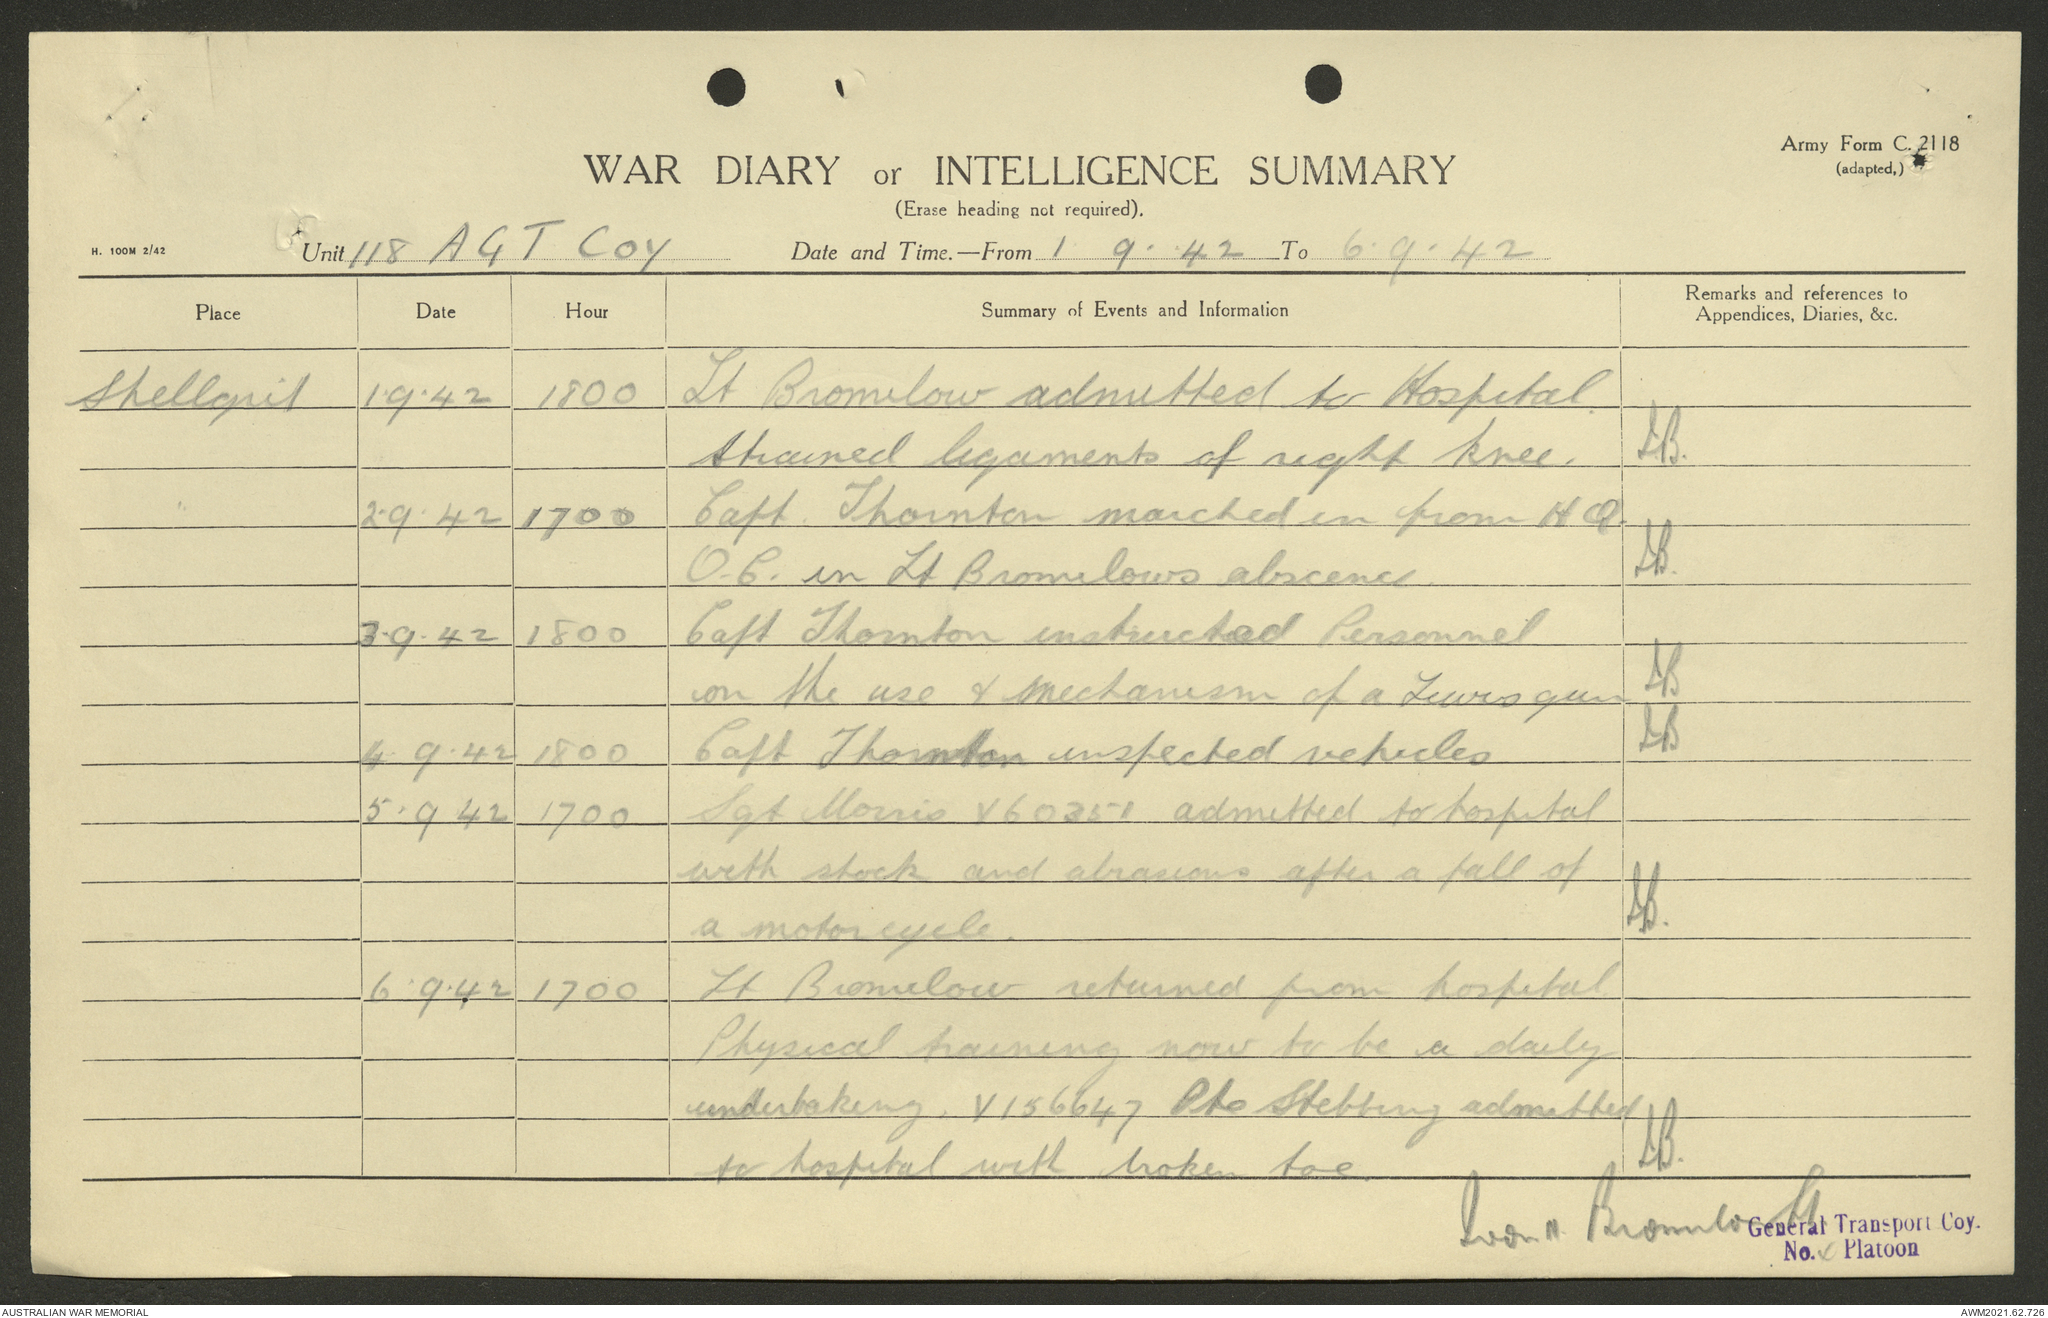 Army Form C. 2118
(adapted,)
WAR DIARY or INTELLIGENCE SUMMARY
(Erase heading not required).
H. 100M 2/42
Unit 118 AGT Coy Date and Time.—From 1 9. 42 To 6.9.42
Place Date Hour Summary of Events and Information Remarks and references to
Appendices, Diaries, &c.
Shellgrit 1.9.42 1800 Lt Bromilow admitted to Hospital.
strained ligaments of right knee. IB.
" 2.9.42 1700 Capt. Thornton marched in from H Q.
O.C. in Lt Bromilows abscence. IB.
3.9.42 1800 Capt Thornton instructed Personnel
on the use & mechanism of a Lewis gun IB
4.9.42 1800 Capt Thornton inspected vehicles IB
5.9.42 1700 Sgt Morris V60351 admitted to hospital
with shock and abrasions after a fall of
a motorcycle. IB.
6.9.42 1700 Lt Bromilow returned from hospital
Physical training now to be a daily
undertaking. V156647 Pte Stebbing admitted
to hospital with broken toe. IB.
Bromilow Lt
General Transport Coy.
No. Platoon
AUSTRALIAN WAR MEMORIAL AWM2021.62.726